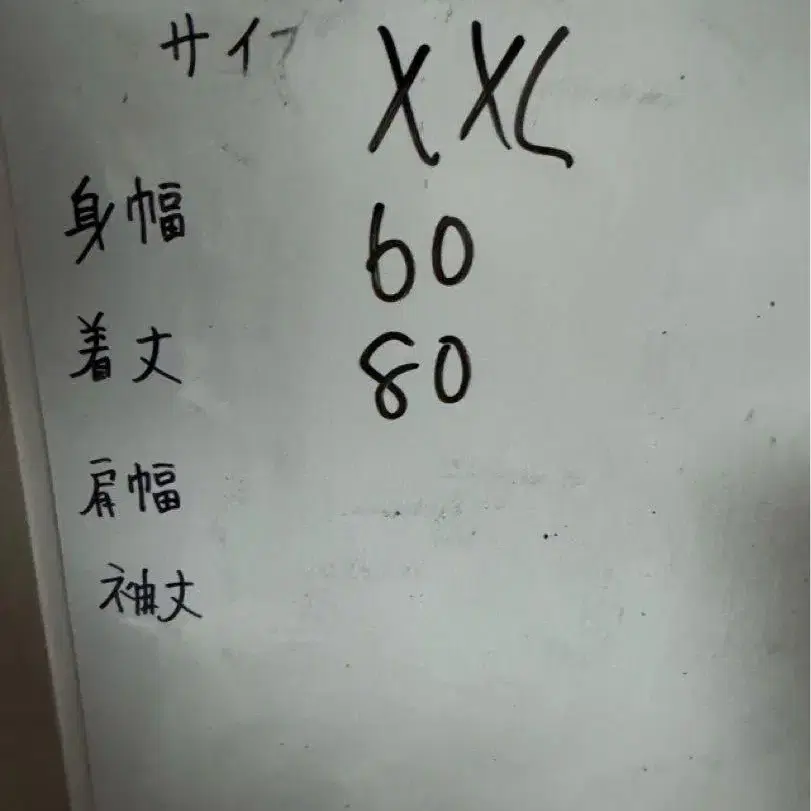 サイズ XXL
身幅 60
着丈 80
肩幅
袖丈